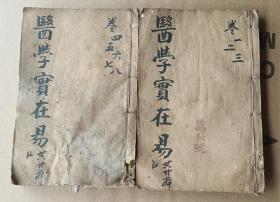 卷一二三
醫學實在易
卷四五六七八
醫學實在易